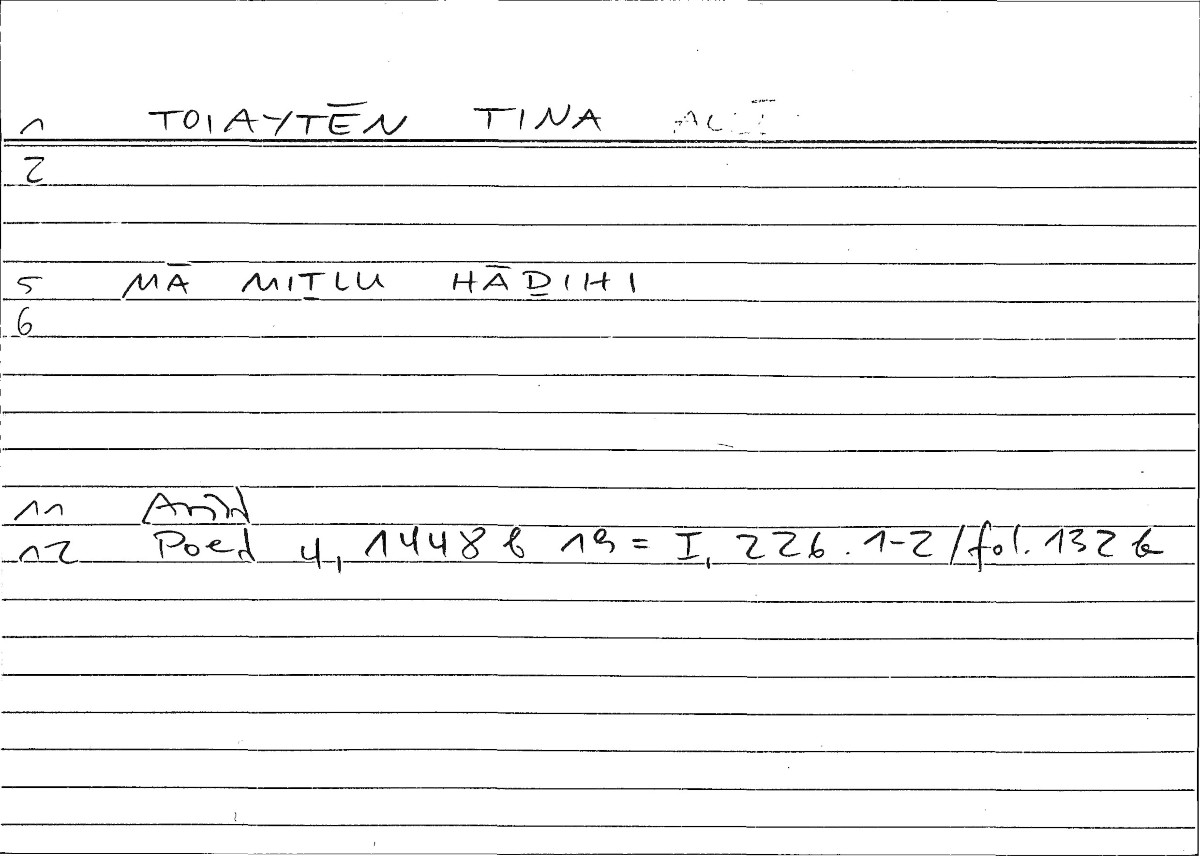 1 TOIAYTĒN TINA
2
5 MĀ MIṮLU HĀḎIHI
6
11 Arist
12 Poed 4, 1448 b 19 = I, 226.1-2/fol. 132 b